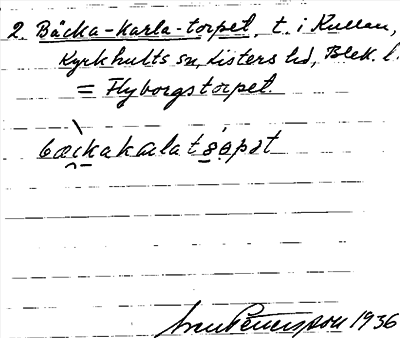 2. Bäcka-Karla-torpet, t. i Kullan,
Kyrkhults sn, Listers hd, Blek. l.
= Flyborgstorpet.
bæckakarlatsåpət
Pettersson 1936